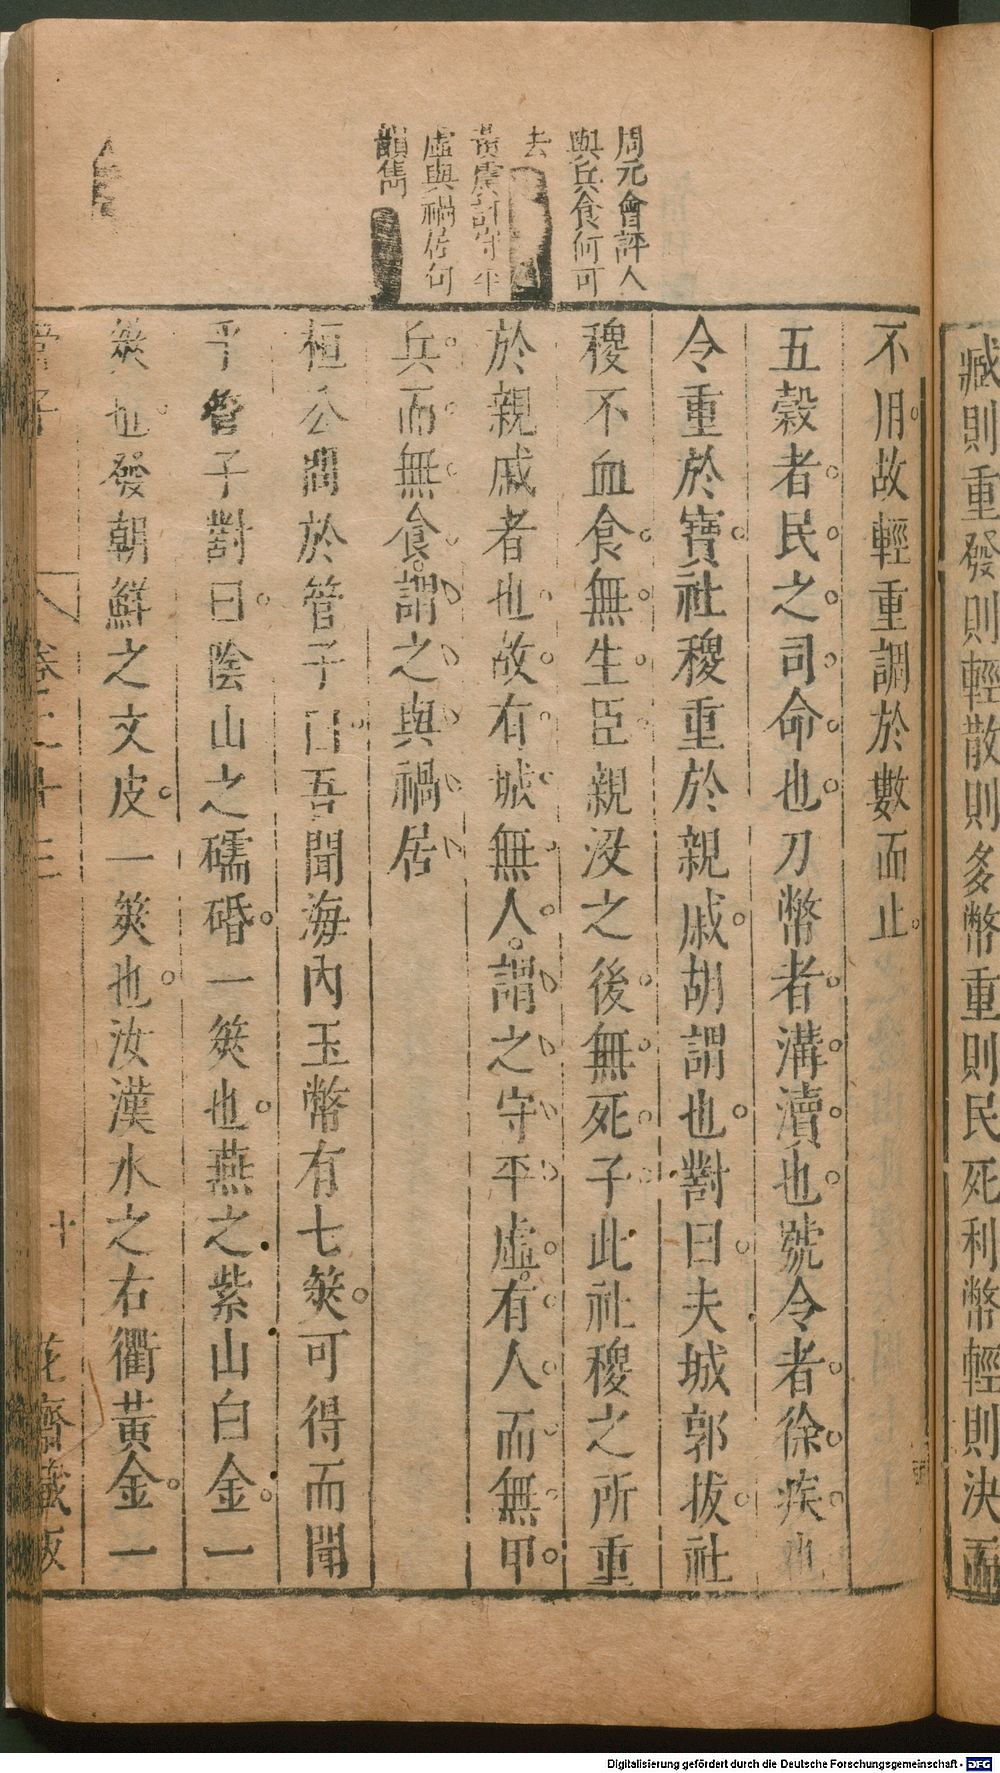 臧則重發則輕散則多幣重則民死利幣輕則決而
周元會評人
與兵食何可
去
虛與禍居句
韻雋
不用故輕重調於數而止
五穀者民之司命也刀幣者溝瀆也號令者徐疾也
令重於寶社稷重於親戚胡謂也對曰夫城郭拔社
稷不血食無生臣親沒之後無死子此社稷之所重
於親戚者也故有城無人謂之守平虛有人而無甲
兵而無食謂之與禍居
桓公問於管子曰吾聞海內玉幣有七筴可得而聞
乎管子對曰陰山之礝碈一筴也燕之紫山白金一
筴也發朝鮮之文皮一筴也汝漢水之右衢黃金一
管子
卷二十三
十
花齋藏板
Digitalisierung gefördert durch die Deutsche Forschungsgemeinschaft - DFG